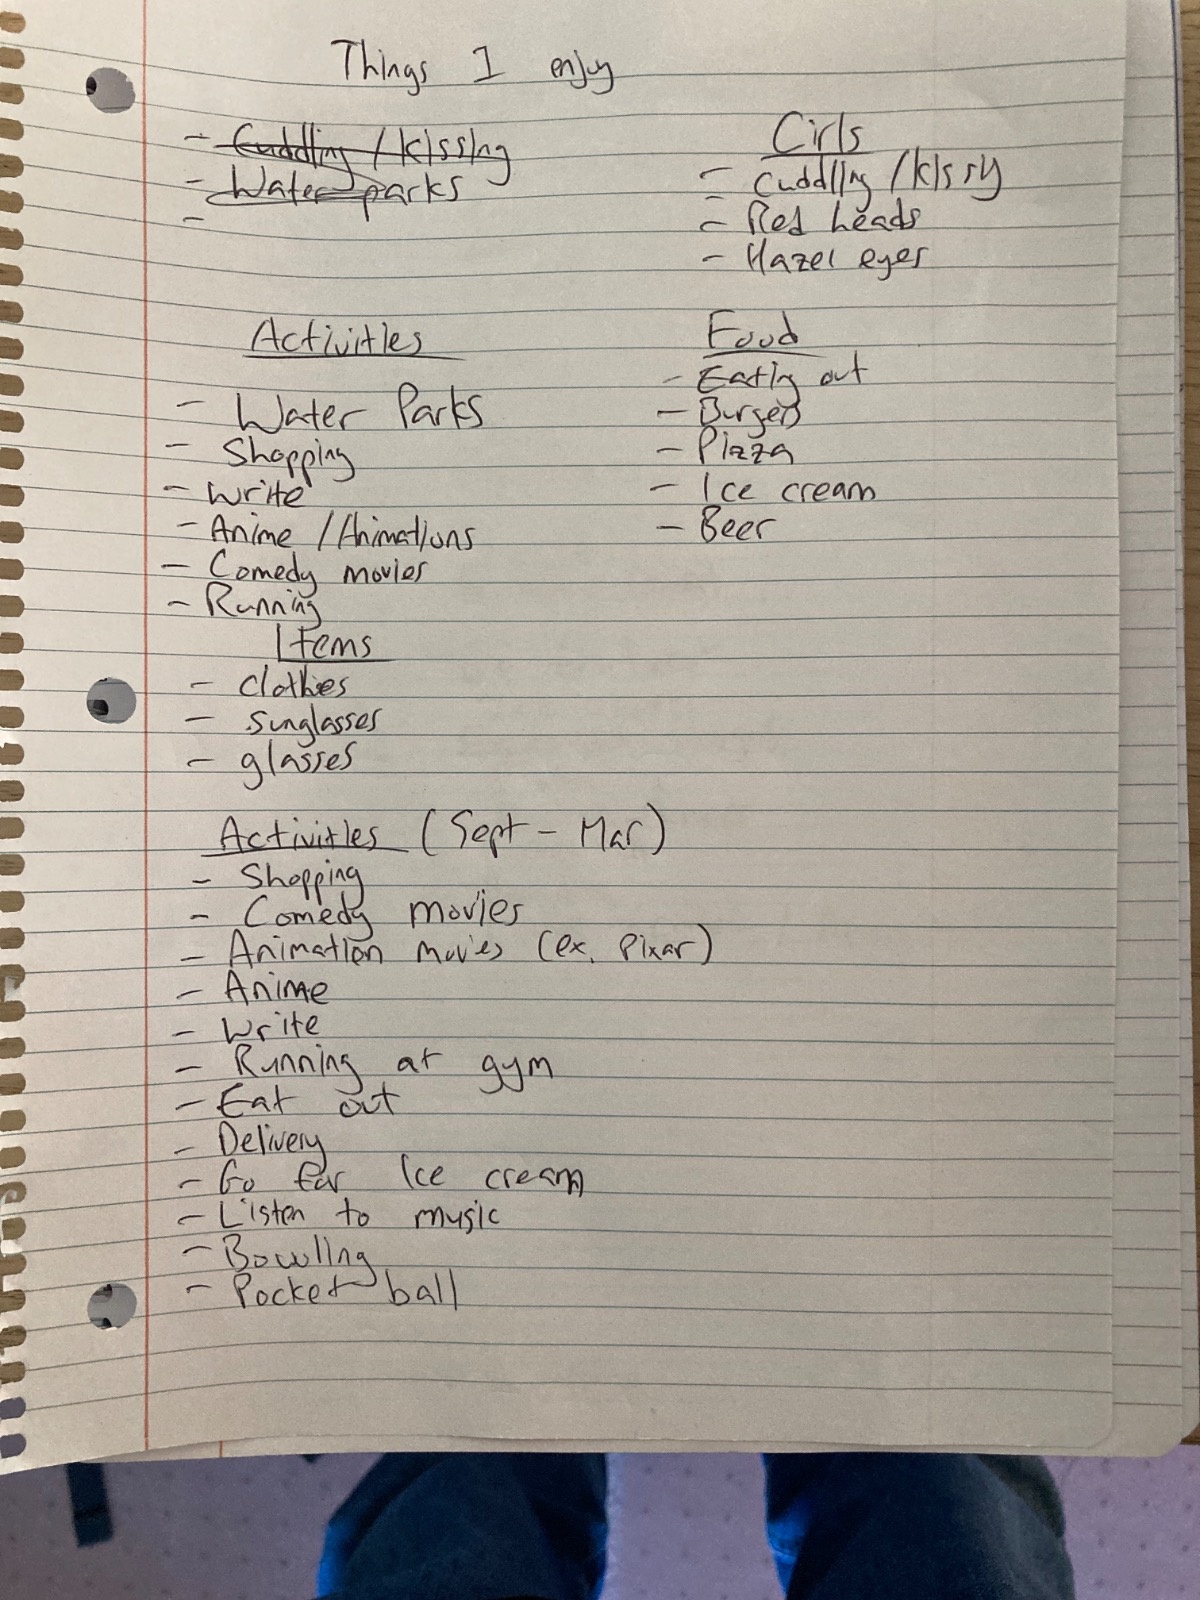 Things I enjoy
- Cuddling / kissing
- Water parks
-
Girls
- Cuddling / kissy
- Red heads
- Hazel eyes
Activities
- Water Parks
- Shopping
- Write
- Anime / Animations
- Comedy movies
- Running
Food
- Eating out
- Burgers
- Pizza
- Ice cream
- Beer
Items
- clothes
- sunglasses
- glasses
Activities (Sept - Mar)
- Shopping
- Comedy movies
- Animation movies (ex. Pixar)
- Anime
- Write
- Running at gym
- Eat out
- Delivery
- Go for Ice cream
- Listen to music
- Bowling
- Pocket ball